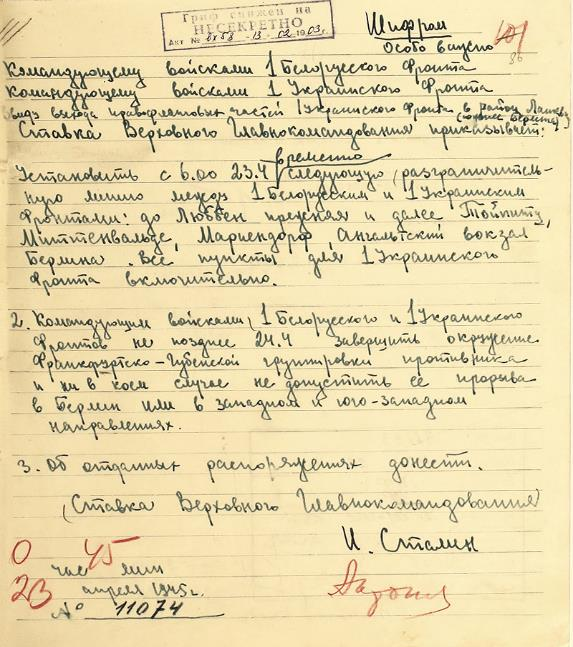 Гриф снижен на
НЕСЕКРЕТНО
Акт № 8х58 - 13 - 02 - 1903г.
Шифром
Особо важно
101
86
Командующему войсками 1 Белорусского Фронта
Командующему войсками 1 Украинского Фронта
Ввиду выхода правофланговых частей 1 Украинского Фронта в район
(южнее Берлина)
Ставка Верховного Главнокомандования приказывает:
временно
Установить с 6.00 23.4 следующую разграничитель-
ную линию между 1 Белорусским и 1 Украинским
Фронтами: до Люббен прежняя и далее Тойпитц,
Миттенвальде, Мариендорф, Ангальтский вокзал
Берлина. Все пункты для 1 Украинского
Фронта включительно.
2. Командующим войсками 1 Белорусского и 1 Украинского
Фронтов не позднее 24.4 завершить окружение
Франкфуртско-Губенской группировки противника
и ни в коем случае не допустить её прорыва
в Берлин или в западном и юго-западном
направлениях.
3. Об отданных распоряжениях донести.
(Ставка Верховного Главнокомандования)
И. Сталин
0 45
час мин
23 апреля 1945г.
№ 11074